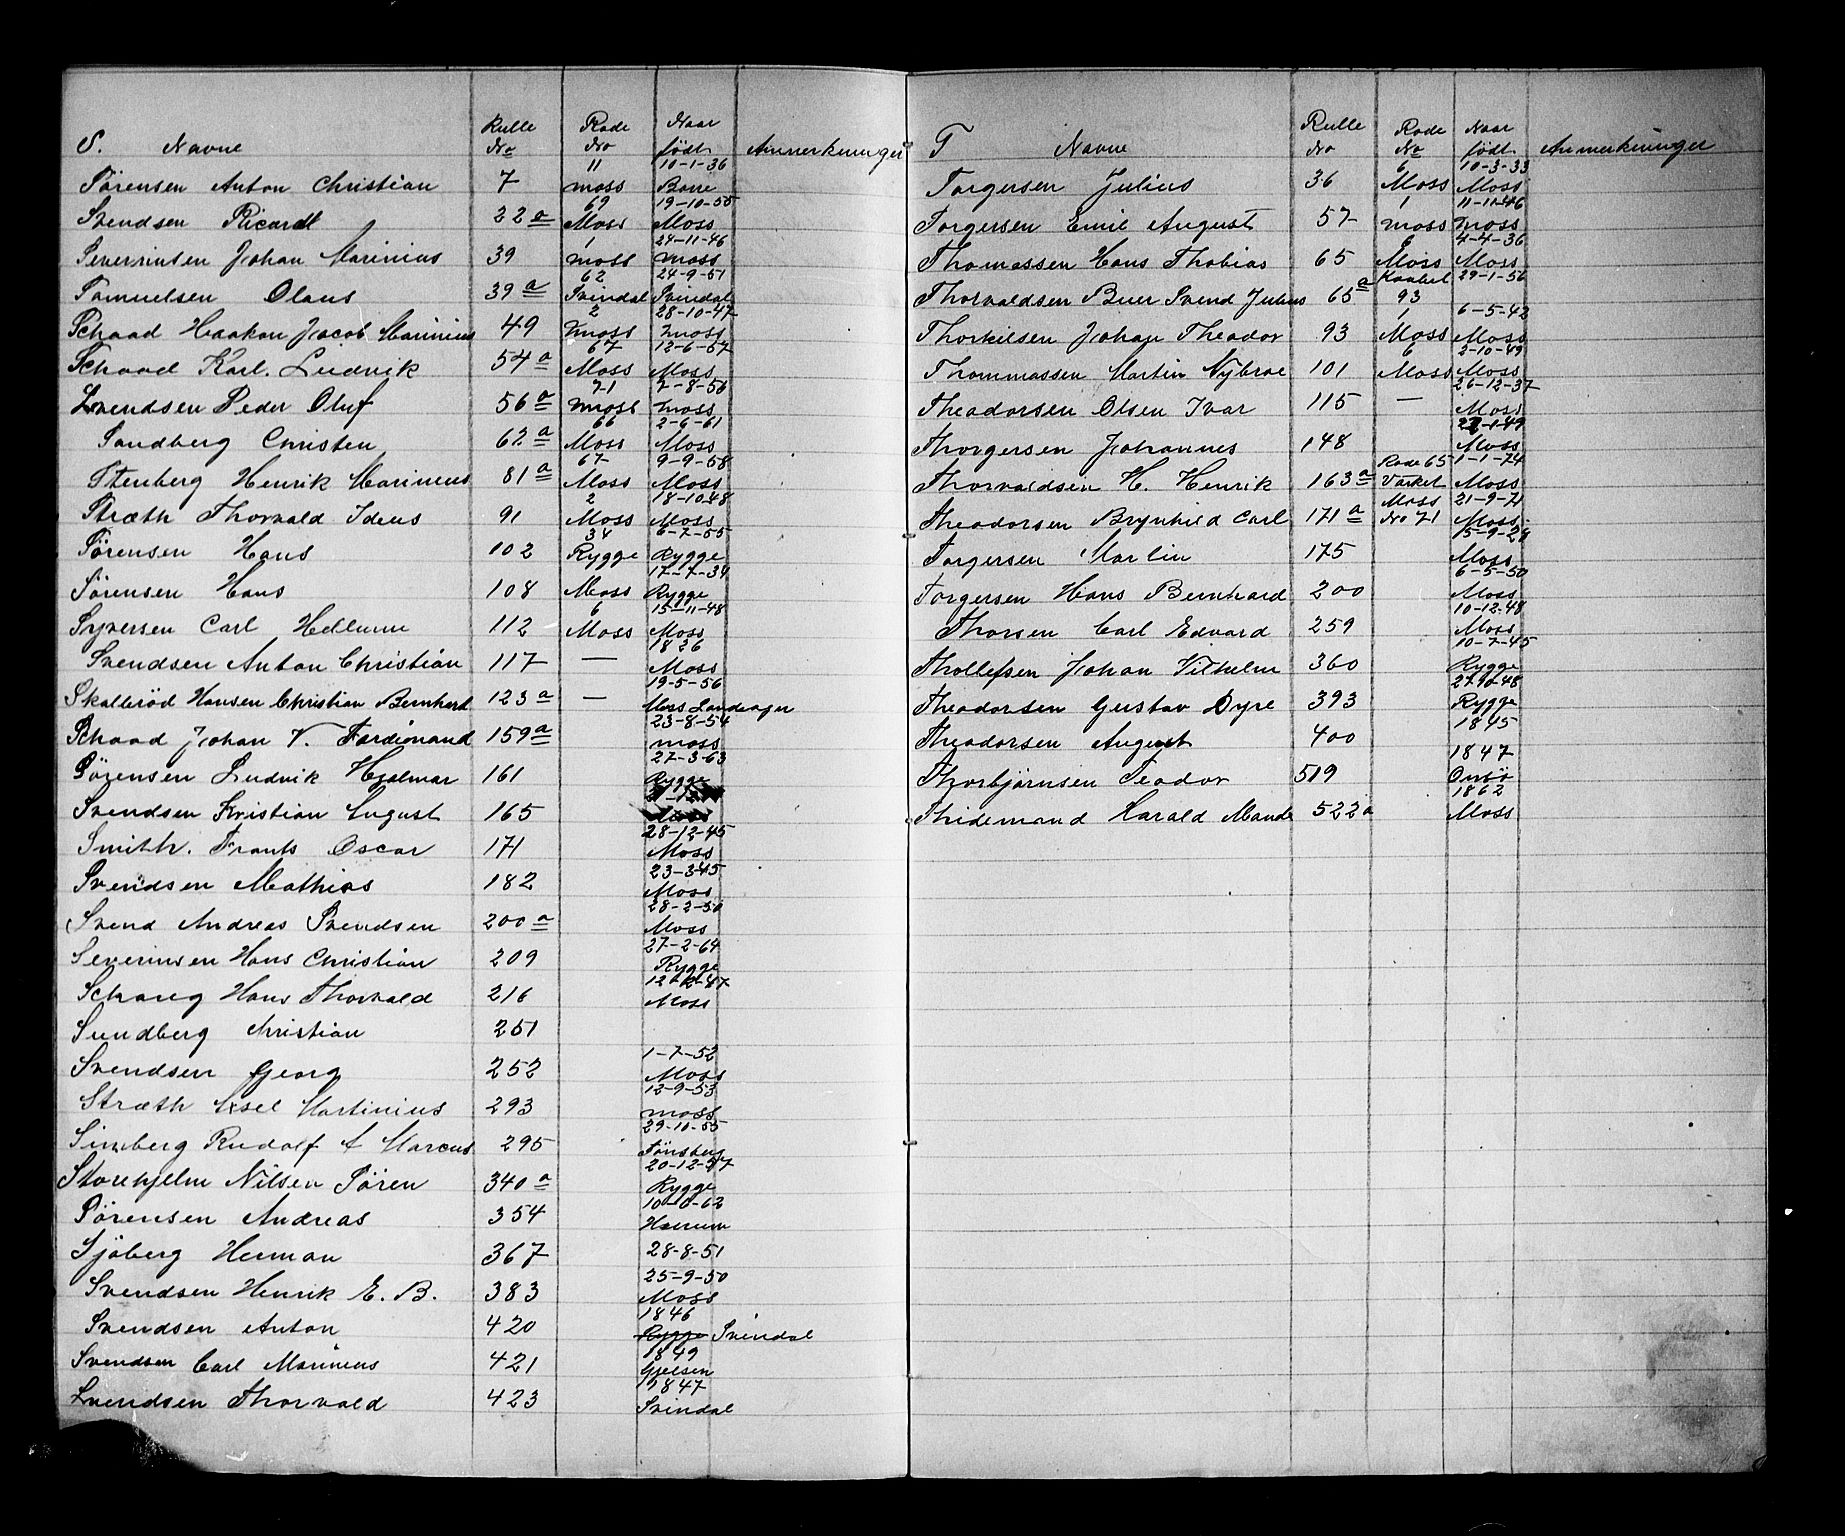 S. Navne Rulle No Rode No Naar født Anmerkninger
Sørensen Anton Christian 7 11 Moss 10-1-36
Svendsen Ricardt 22a 69 Moss 19-10-55 Moss
Severinsen Johan Marinius 39 1 Moss 24-11-46 Moss
Samuelsen Olaus 39a 62 Svindal 24-9-51 Svindal
Schaad Haakon Jacob Marinius 49 2 Moss 28-10-47 Moss
Schaad Karl. Ludvik 54a 67 Moss 12-6-57 Moss
Svendsen Peder Oluf 56a 71 Moss 7-8-56 Moss
Sandberg Christen 62a 66 Moss 2-6-61 Moss
Stenberg Henrik Marinius 81a 67 Moss 9-9-58 Moss
Stræth Thorvald Ideus 91 2 Moss 18-10-48 Moss
Sørensen Hans 102 34 Rygge 6-7-55 Rygge
Sørensen Hans 108 Moss 17-7-34 Rygge
Syversen Carl Hellum 112 6 Moss 15-11-48 Moss
Svendsen Anton Christian 117 — 1826 Moss
Skallerød Hansen Christian Bernhard 123a — 19-5-56 Moss Landsogn
Schaad Johan V. Ferdinand 159a 23-8-54 Moss
Sørensen Ludvik Hjalmar 161 27-3-63 Rygge
Svendsen Kristian August 165
Smith. Frants Oscar 171 28-12-45 Moss
Svendsen Mathias 182 23-3-45 Moss
Svend Andreas Svendsen 200a 28-2-50 Moss
Severinsen Hans Christian 209 27-2-64 Rygge
Schareg Hans Thorvald 216 12-12-47 Moss
Sundberg Christian 251
Svendsen Georg 252 1-7-52 Moss
Stræth Axel Martinius 293 12-9-53 Moss
Simberg Rudolf A Marcus 295 29-10-55 Tønsberg
Storehjelm Nilsen Søren 340a 20-12-57 Rygge
Sørensen Andreas 354 10-10-62
Sjøberg Herman 367 28-8-51
Svendsen Henrik E. B. 383 25-9-50 Moss
Svendsen Anton 420 1846 Rygge Svindal
Svendsen Carl Marinius 421 1849
Svendsen Thorvald 423 1847 Svindal
T Navne Rulle No Rode No Naar født Anmerkninger
Torgersen Julius 36 6 Moss 10-3-33 Moss
Torgersen Emil August 57 1 Moss 11-11-46 Moss
Thomassen Hans Thobias 65 6 Moss 4-4-36 Moss
Thorvaldsen Buer Svend Julius 65a Kambet 93 29-1-56
Thorkilsen Johan Theodor 93 1 Moss 6-5-42 Moss
Thommassen Martin Nybroe 101 6 Moss 2-10-49 Moss
Theodorsen Olsen Ivar 115 — 26-12-37 Moss
Thorgersen Johannes 148 22-1-49 Moss
Thorvaldsen H. Henrik 163a Rode 65 Værket 1-1-74 Moss
Theodorsen Brynhild Carl 171a Moss No 71 21-9-71 Moss
Torgersen Martin 175 15-9-29 Moss
Torgersen Hans Bernhard 200 6-5-50 Moss
Thorsen Carl Edvard 259 10-12-48 Moss
Thollefsen Johan Vilhelm 360 10-7-45 Rygge
Theodorsen Gustav Dyre 393 27-10-48 Rygge
Theodorsen August 400 1845
Thorbjørnsen Teodor 519 1847 Onsø
Thidemand Harald Mande 522a 1862 Moss